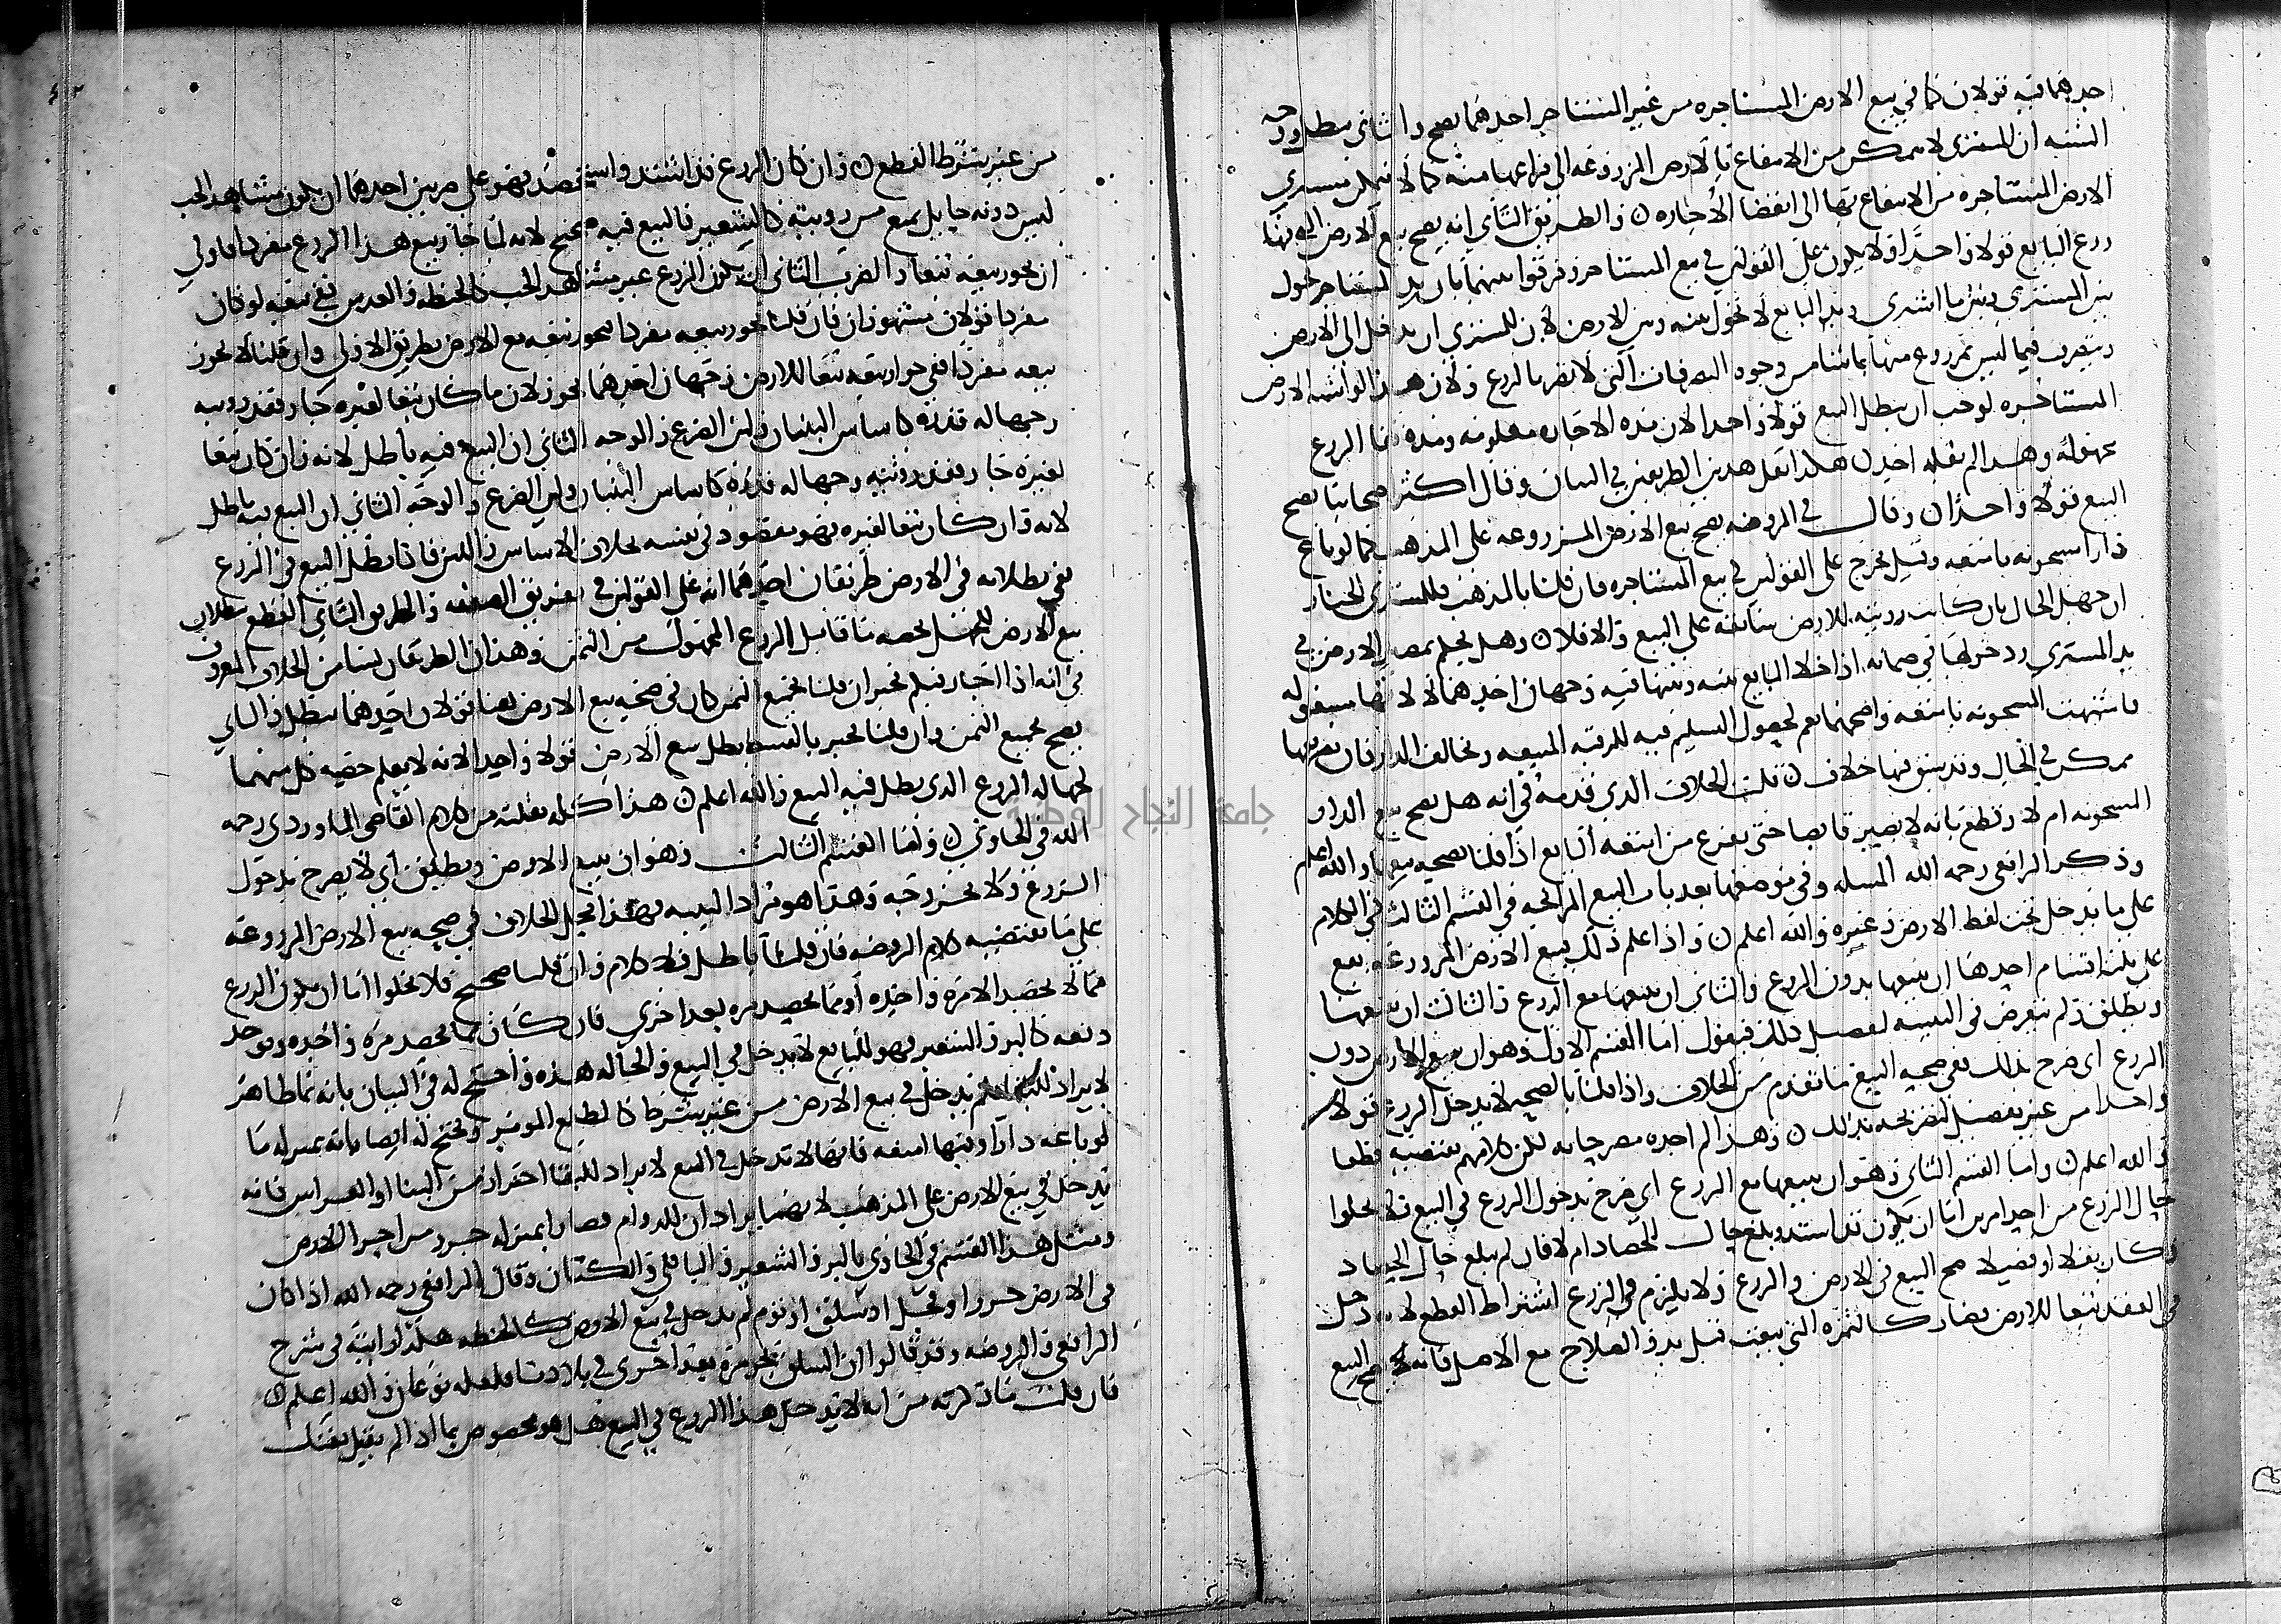 احدهما فيه قولان كما في بيع الارض المستاجره من غير المستاجر احدهما يصح والثاني يبطل ووجه
الشبه ان المشتري لا يتمكن من الانتفاع بالارض المزروعه الى فراغها منه كما لا يتمكن مشتري
الارض المستاجره من الانتفاع بها الى انقضا الاجاره والطريق الثاني انه يصح بيع الارض التي فيها
زرع البايع قولا واحدا ولا يكون على القولين في بيع المستاجر وفرقوا بينهما بان يد المستاجر تحول
بين المشتري وبين ما اشترى ويد البايع لا تحول بينه وبين الارض لان للمشتري ان يدخل الى الارض
ويتصرف فيما ليس بمزروع منها بما شا من وجوه التصرفات التي لا تضر بالزرع ولان هذا لو اشبه الارض
المستاجره لوجب ان يبطل البيع قولا واحدا لان مده الاجاره معلومه ومده بقا الزرع
مجهوله وهذا لم يقله احد هكذا نقل هذين الطريقين في البيان وقال اكثر اصحابنا يصح
البيع قولا واحدا وقال في الروضه يصح بيع الارض المزروعه على المذهب كما لو باع
دارا مشحونه بامتعه وقيل يخرج على القولين في بيع المستاجره فان قلنا بالمذهب فللمشتري الخيار
ان جهل الحال بان كانت رويته للارض سابقه على البيع والا فلا وهل يحكم بمصير الارض في
يد المشتري ودخولها في ضمانه اذا خلا البايع بينه وبينها فيه وجهان احدهما لا لانها مشغوله
فاشبهت المشحونه بامتعه واصحهما نعم لحصول التسليم فيه للرقبه المبيعه وتخالف الدار فان تفريغها
ممكن في الحال وقد سبق فيها خلاف قلت الخلاف الذي قدمه في انه هل يصح بيع الدار
المشحونه ام لا وقطع بانه لا يصير قابضا حتى يفرغ من امتعه البايع اذا قلنا بصحه بيعها والله اعلم
وذكر الرافعي رحمه الله المسله وفي موضعها بعد باب البيع المرابحه في القسم الثالث في الكلام
على ما يدخل تحت لفظ الارض وغيره والله اعلم واذا علم ذلك بيع الارض المزروعه يقع
على ثلثه اقسام احدها ان يبيعها بدون الزرع والثاني ان يبيعها مع الزرع والثالث ان يبيعها
ويطلق ولم يتعرض في التنبيه لتفصيل ذلك فنقول اما القسم الاول وهو ان يبيع الارض دون
الزرع اي صرح بذلك ففي صحه البيع ما تقدم من الخلاف واذا قلنا بالصحه لا يدخل الزرع قولا
واحدا من غير تفصيل لتصريحه بذلك وهذا لم اجده مصرحا به لكن كلامهم يقتضيه قطعا
والله اعلم واما القسم الثاني وهو ان يبيعها مع الزرع اي صرح بدخول الزرع في البيع فلا يخلوا
حال الزرع من احد امرين اما ان يكون قد اشتد وبلغ حال الحصاد ام لا فان لم يبلغ حال الحصاد
وكان بقلا او قصيلا صح البيع في الارض والزرع ولا يلزم في الزرع اشتراط القطع لانه دخل
في العقد تبعا للارض فصار كالثمره التي بيعت قبل بدو الصلاح مع الاصل فانه يصح البيع
من غير شرط القطع وان كان الزرع قد اشتد واستحصد فهو على ضربين احدهما ان يكون مشاهد الحب
ليس دونه حايل يمنع من رويته كالشعير فالبيع فيه صحيح لانه لما جاز بيع هذا الزرع مفردا فاولى
ان يجوز بيعه تبعا والضرب الثاني ان يكون الزرع غير مشاهد الحب كالحنطه والعدس ففي بيعه لو كان
مفردا قولان مشهوران فان قلنا يجوز بيعه مفردا يجوز بيعه مع الارض بطريق الاولى وان قلنا لا يجوز
بيعه مفردا ففي جواز بيعه تبعا للارض وجهان احدهما يجوز لان ما كان تبعا لغيره جاز فقد رويته
وجهاله قدره كاساس البنيان ولبن الضرع والوجه الثاني ان البيع فيه باطل لانه وان كان تبعا
لغيره جاز فقد رويته وجهاله قدره كاساس البنيان ولبن الضرع والوجه الثاني ان البيع فيه باطل
لانه وان كان تبعا لغيره فهو مقصود في نفسه بخلاف الاساس واللبن فاذا بطل البيع في الزرع
ففي بطلانه في الارض طريقان احدهما انه على القولين في تفريق الصفقه والطريق الثاني القطع ببطلان
بيع الارض للجهل بحصه ما قابل الزرع المجهول من الثمن وهذان الطريقان بنيا من الخلاف المعروف
في انه اذا اجاز فبكم يخير ان قلنا بجميع الثمن كان في صحه بيع الارض هنا قولان احدهما يبطل والثاني
يصح بجميع الثمن وان قلنا يخير بالقسط بطل بيع الارض قولا واحدا لانه لا يعلم حصه كل منهما
لجهاله الزرع الذي بطل فيه البيع والله اعلم هذا كله نقلته من كلام القاضي الماوردي رحمه
الله في الحاوي واما القسم الثالث وهو ان يبيع الارض ويطلق اي لا يصرح بدخول
الزرع ولا بخروجه وهذا هو مراد التنبيه فهذا محل الخلاف في صحه بيع الارض المزروعه
على ما يقتضيه كلام الروضه فان قلنا باطل فلا كلام وان قلنا صحيح فلا يخلوا اما ان يكون الزرع
مما لا يحصد الا مره واحده او مما يحصد مره بعد اخرى فان كان مما يحصد مره واحده ويوخذ
دفعه كالبر والشعير فهو للبايع لا يدخل في البيع والحاله هذه واحتج له في البيان بانه نما ظاهر
لا يراد للبقا فلم يدخل في بيع الارض من غير شرط كالطلع الموبر ويحتج له ايضا بانه بمنزله ما
لو باعه دارا وفيها امتعه فانها لا تدخل في البيع لا يراد للبقا احترازا من البنا او الغراس فانه
يدخل في بيع الارض على المذهب لانهما يرادان للدوام فصارا بمنزله جزو من اجزا الارض
ومثل هذا القسم في الحاوي بالبر والشعير والباقلي والكتان وقال الرافعي رحمه الله اذا كان
في الارض جزر او فجل او سلق او ثوم لم يدخل في بيع الارض كالحنطه هكذا رايته في شرح
الرافعي والروضه وقد قالوا ان السلق يجز مره بعد اخرى في بلادنا فلعله نوعان والله اعلم
فان قلت ما ذكرته من انه لا يدخل هذا الزرع في البيع هل هو مخصوص بما اذا لم يقل بعتك